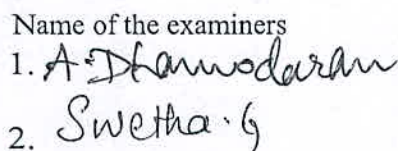 Name of the examiners
1. A. Dhamodaran
2. Swetha. G